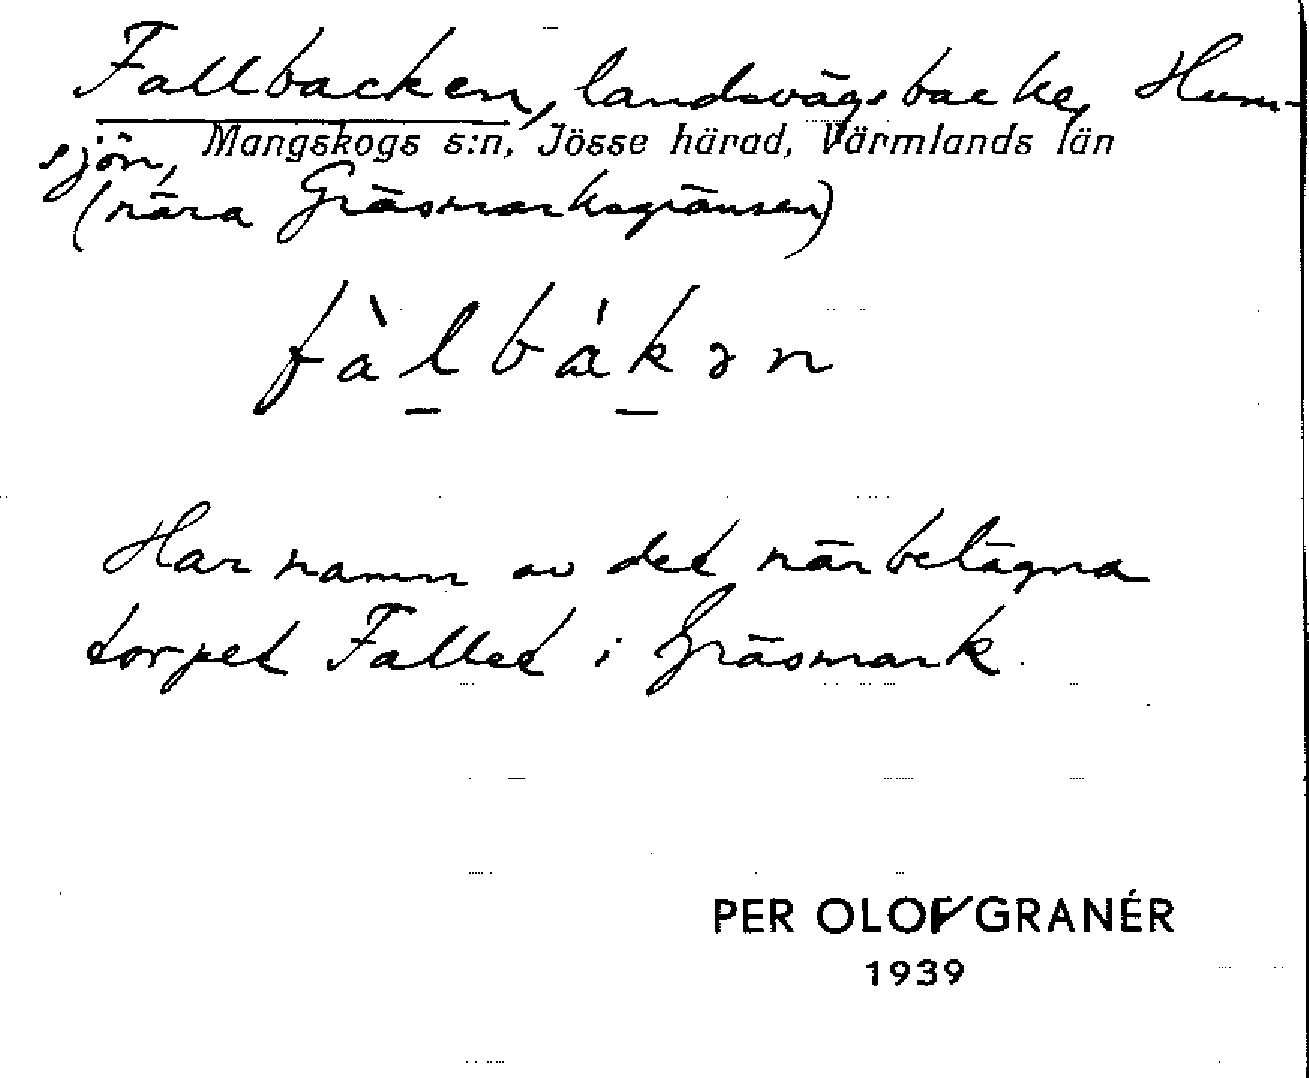 Fallbacken, landsvägsbacke, Hum-
sjön, Mangskogs s:n, Jösse härad, Värmlands län
(nära Gräsmarksgränsen)
fàl̲bák̲ən
Har namn av det närbelägna
torpet Fallet i Gräsmark.
PER OLOF GRANÉR
1939